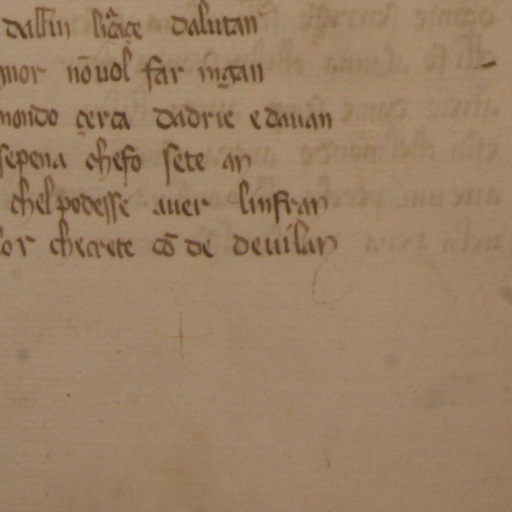 dalutan
mor nōuol far ingan
mondo çerca dadrie e dauan
sepena chefo sete an
chel podesse auer linfran
or checrete cō de deuilan